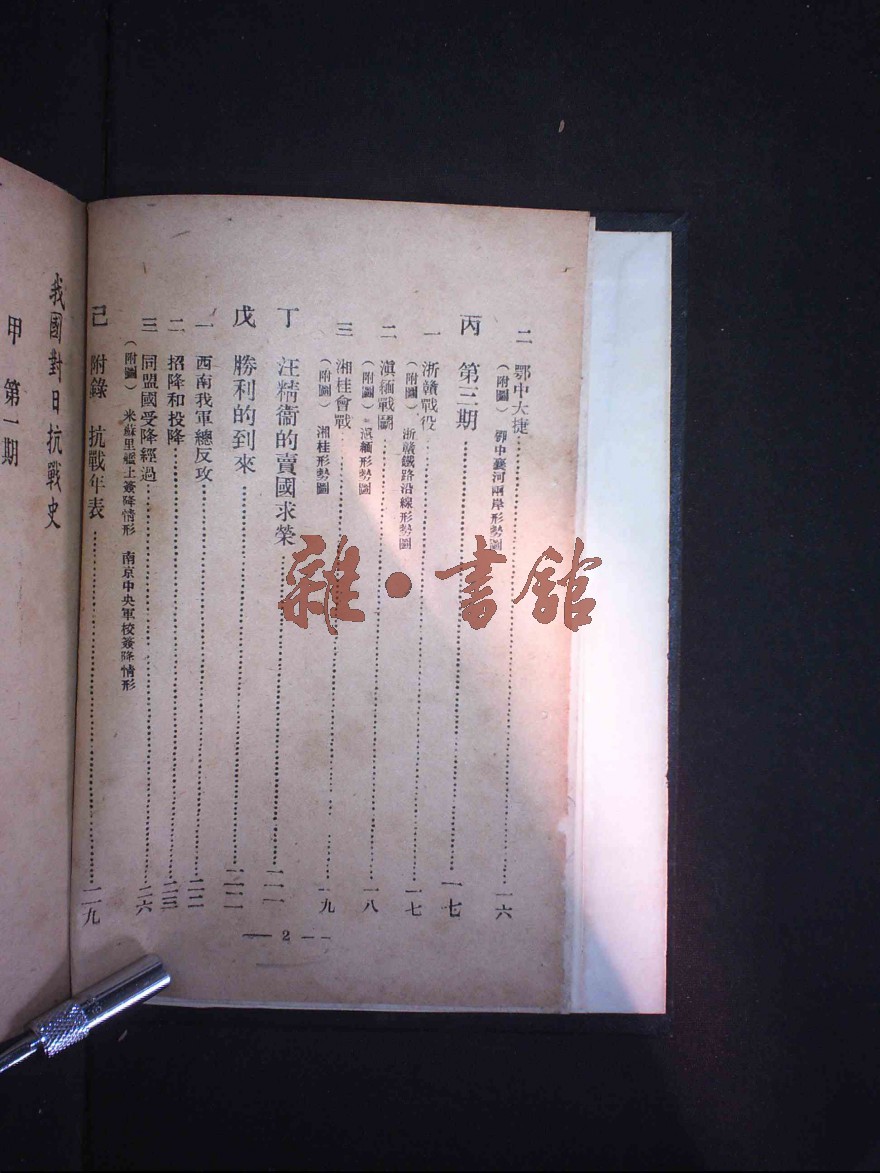 二 鄂中大捷……一六
（附圖） 鄂中襄河兩岸形勢圖
丙 第三期……一七
一 浙贛戰役……一七
（附圖） 浙贛鐵路沿線形勢圖
二 滇緬戰鬭……一八
（附圖） 滇緬形勢圖
三 湘桂會戰……一九
（附圖） 湘桂形勢圖
丁 汪精衞的賣國求榮……二一
戊 勝利的到來……二二
一 西南我軍總反攻……二二
二 招降和投降……二三
三 同盟國受降經過……二六
（附圖） 米蘇里艦上簽降情形 南京中央軍校簽降情形
己 附錄 抗戰年表……二九
— 2 —
我國對日抗戰史
甲 第一期
雜·書館